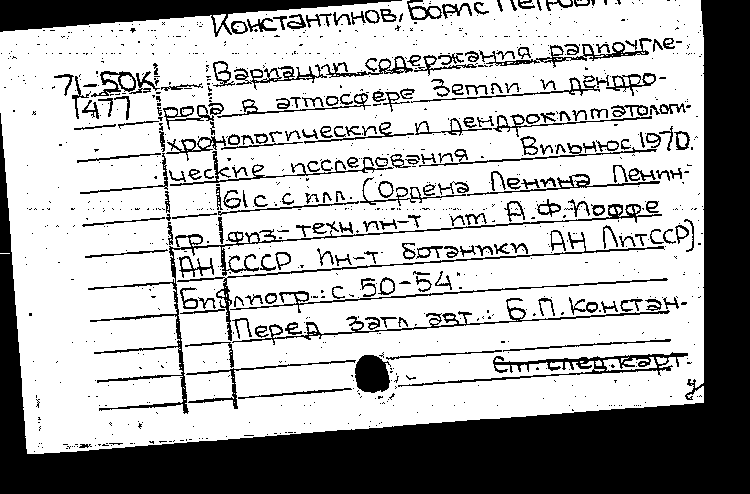 Константинов, Борис Петрович
71-50К Вариации содержания радиоугле-
1477 рода в атмосфере Земли и дендро-
хронологические и дендроклиматологи-
ческие исследования. Вильнюс, 1970.
61с. с илл. (Ордена Ленина Ленин-
гр. Физ.-техн. ин-т им. А.Ф.Иоффе
АН СССР. Ин-т ботаники АН ЛитССР).
Библиогр.: с. 50-54.
Перед загл. авт.: Б.П. Констан-
См. след. карт.